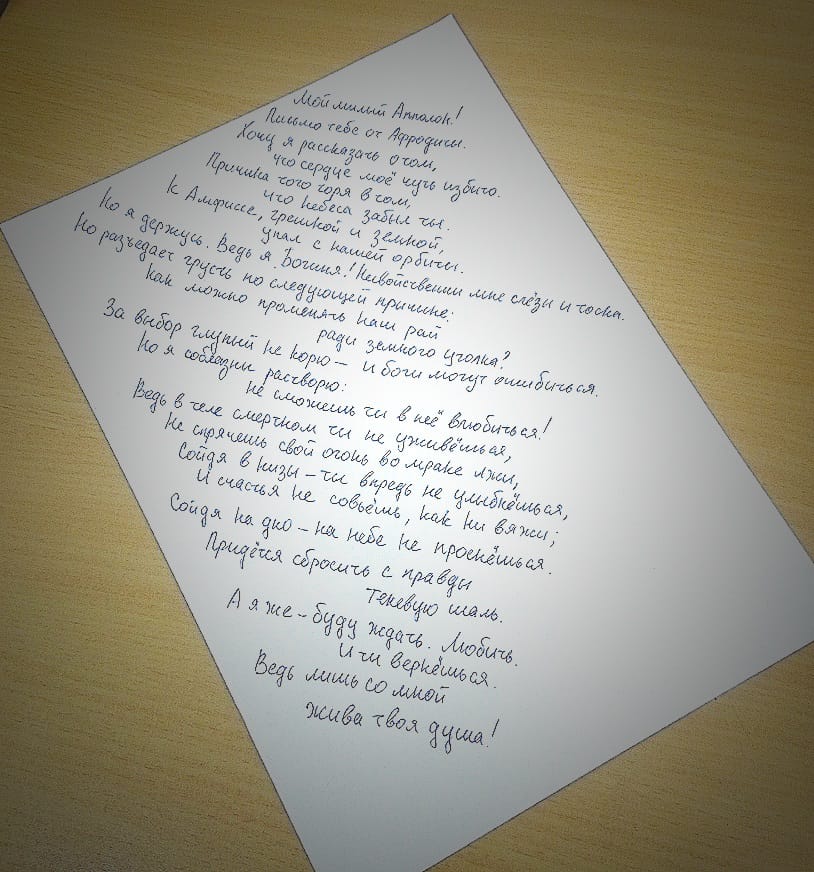 Мой милый Апполон!
Письмо тебе от Афродиты.
Хочу я рассказать о том,
что сердце моё чуть избито.
Причина того горя в том,
что небеса забыл ты.
К Амфиссе, грешной и земной,
упал с нашей орбиты.
Но я держусь. Ведь я Богиня! Несвойственны мне слёзы и тоска.
Но разъедает грусть по следующей причине:
как можно променять наш рай
ради земного уголка?
За выбор глупый не корю – и боги могут ошибиться.
Но я соблазны растворю:
не сможешь ты в неё влюбиться!
Ведь в теле смертном ты не уживёшься,
Не спрячешь свой огонь во мраке лжи,
Сойдя в низы – ты впредь не улыбнёшься,
И счастья не совьёшь, как ни вяжи;
Сойдя на дно – на небе не проснёшься.
Придётся сбросить с правды
теневую шаль.
А я же – буду ждать. Любить.
И ты вернёшься.
Ведь лишь со мной
жива твоя душа!